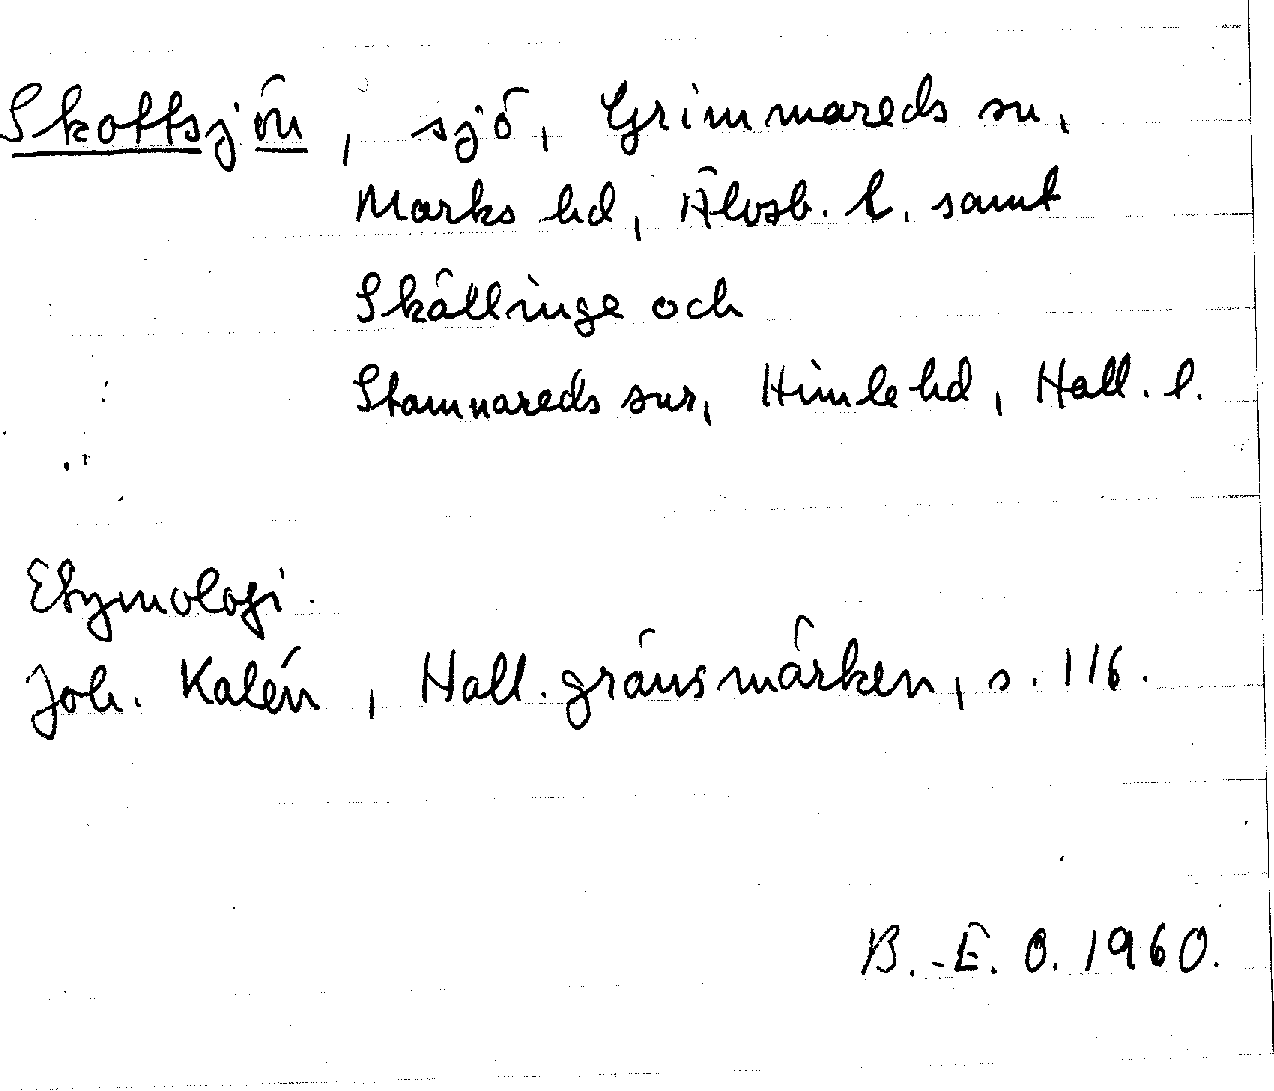 Skottsjön, sjö, Grimmareds sn,
Marks hd, Älvsb. l. samt
Skällinge och
Stamnareds snr, Himle hd, Hall. l.
Etymologi.
Joh. Kalén, Hall. gränsmärken, s. 116.
B.-E. O. 1960.